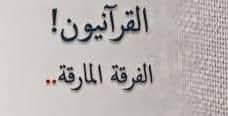 القرآنيون!
الفرقة المارقة..